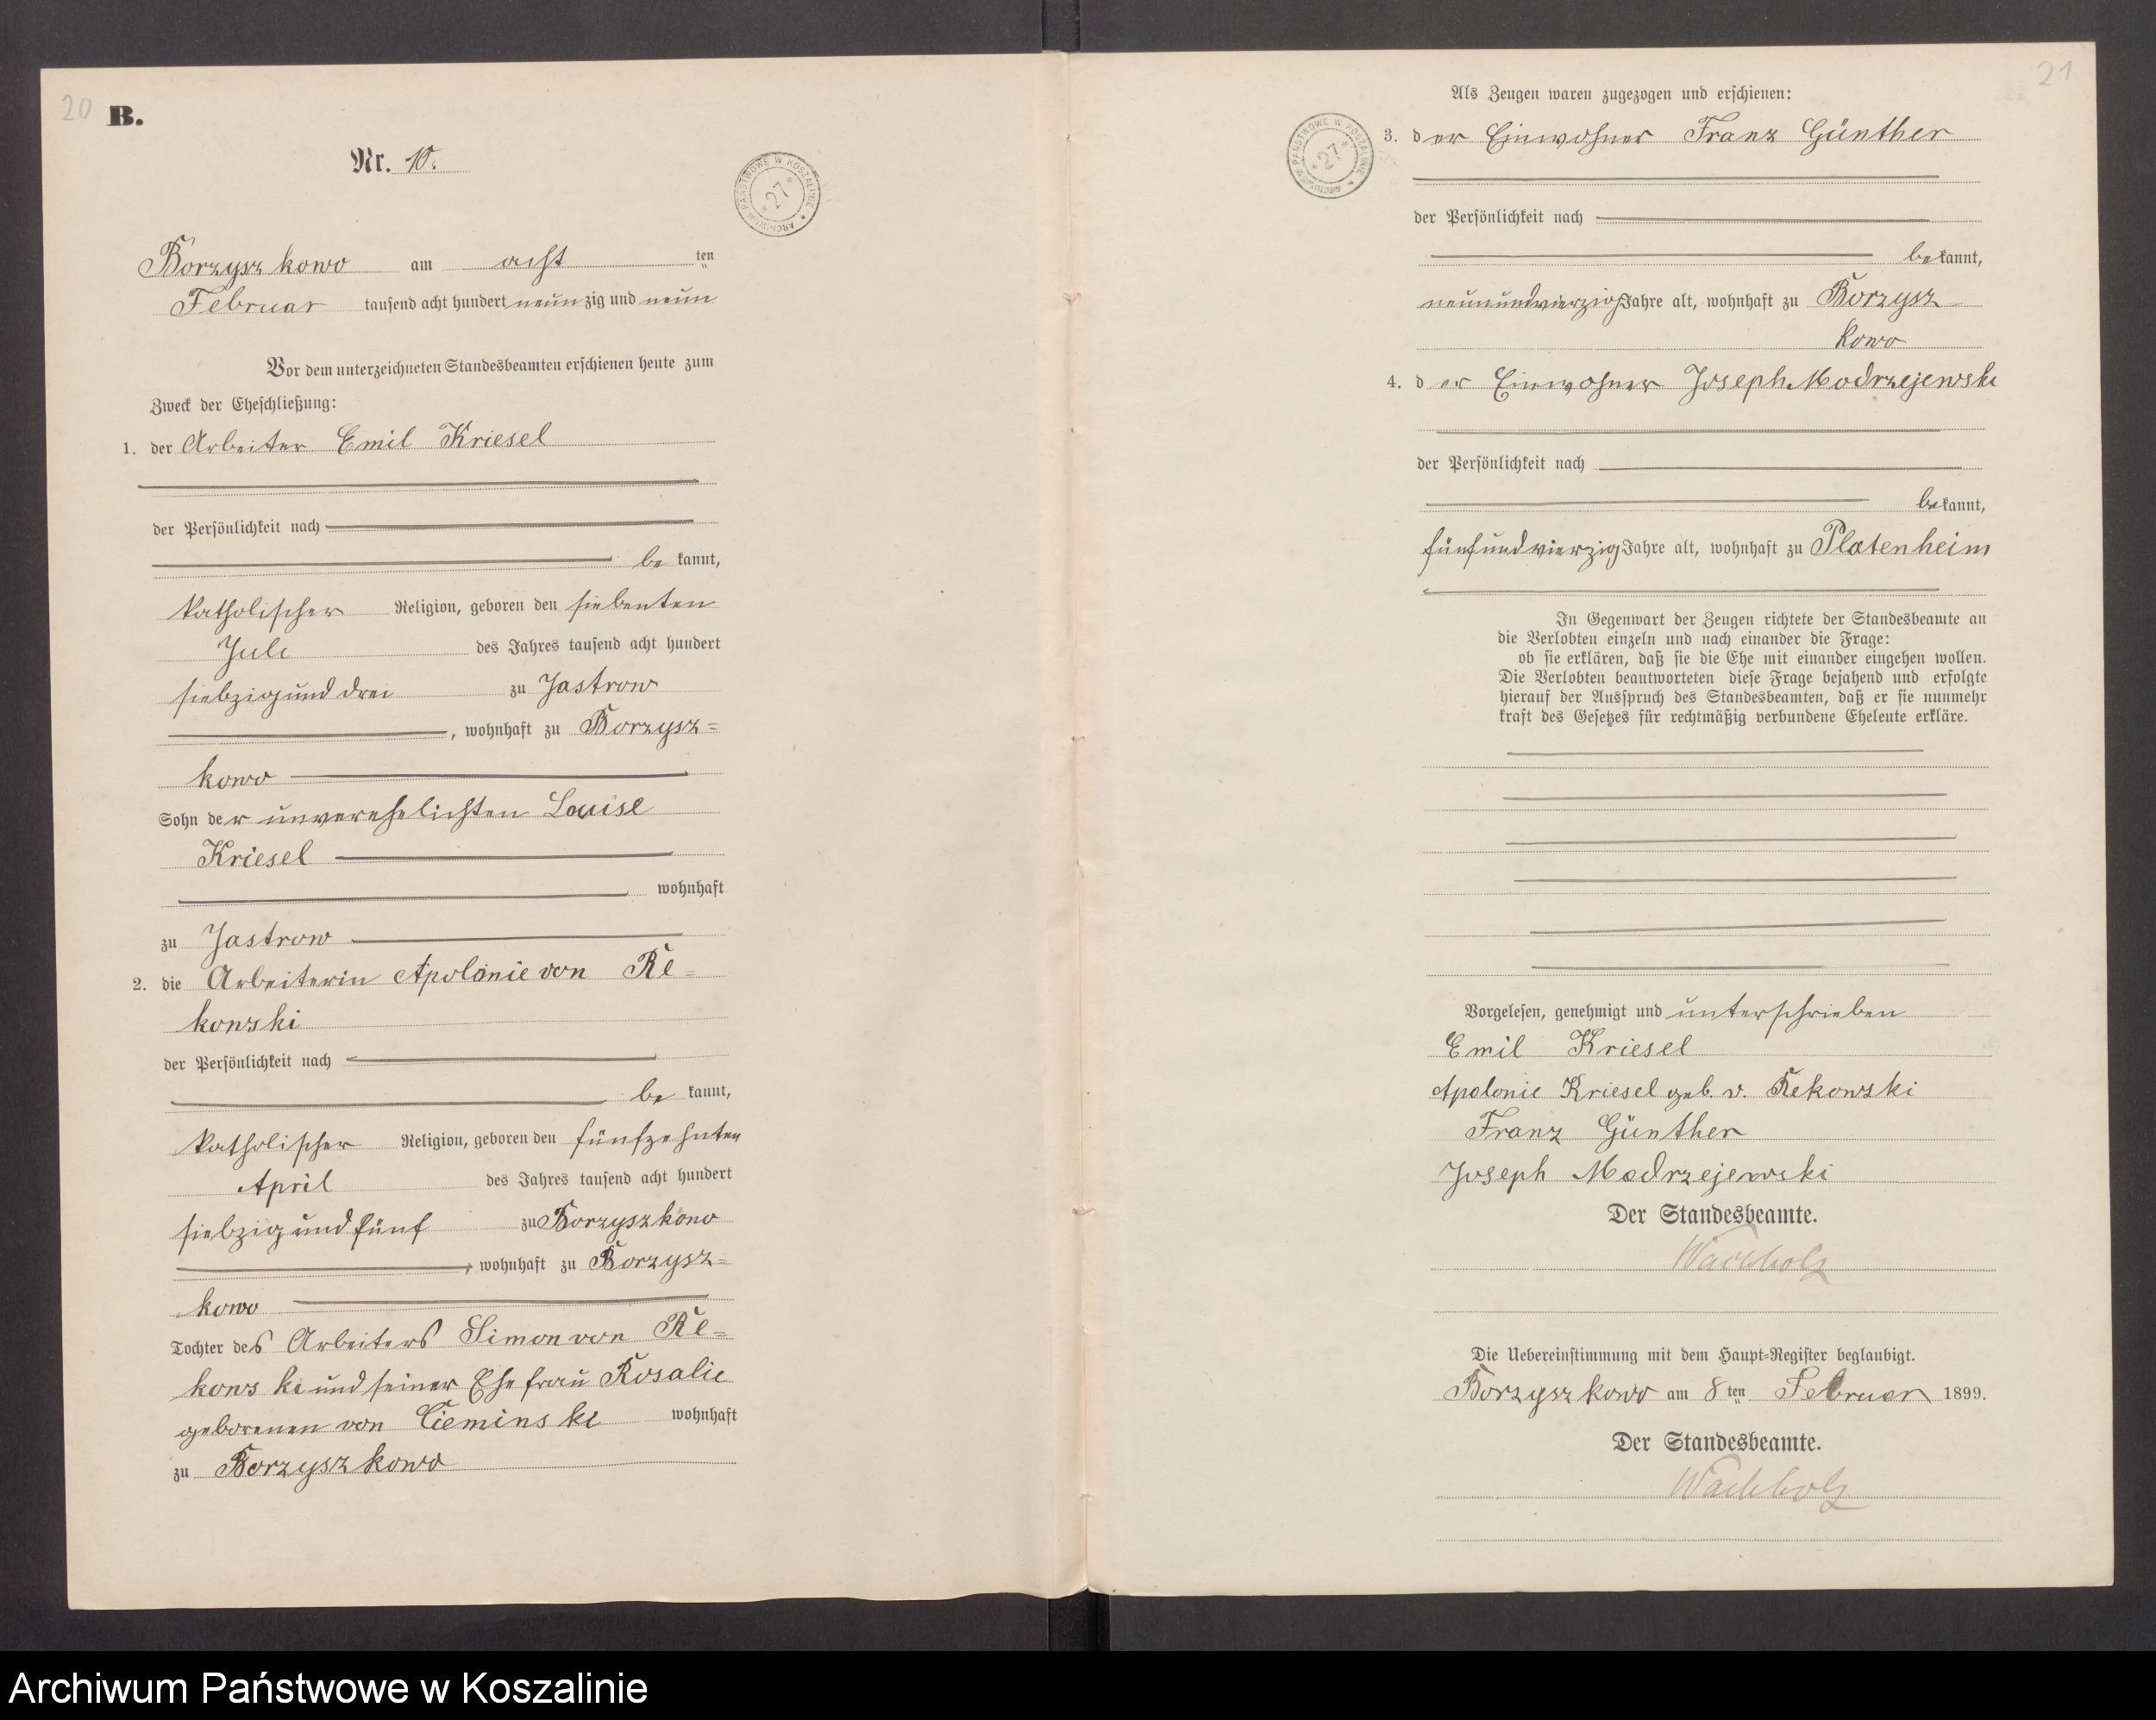 20 B.
Nr. 10.
ARCHIWUM PAŃSTWOWE W KOSZALINIE * 27 *
Borzyszkowo am acht ten
Februar tausend acht hundert neunzig und neun
Vor dem unterzeichneten Standesbeamten erschienen heute zum
Zweck der Eheschließung:
1. der Arbeiter Emil Kriesel
der Persönlichkeit nach
be kannt,
katholischer Religion, geboren den siebenten
Juli des Jahres tausend acht hundert
siebzig und drei zu Jastrow
, wohnhaft zu Borzysz=
kowo
Sohn der unverehelichten Louise
Kriesel
wohnhaft
zu Jastrow
2. die Arbeiterin Apolonie von Re=
kowski
der Persönlichkeit nach
be kannt,
katholischer Religion, geboren den fünfzehnten
April des Jahres tausend acht hundert
siebzig und fünf zu Borzyszkowo
, wohnhaft zu Borzysz=
kowo
Tochter des Arbeiters Simon von Re=
kowski und seiner Ehefrau Rosalie
geborenen von Cieminski wohnhaft
zu Borzyszkowo
21
Als Zeugen waren zugezogen und erschienen:
ARCHIWUM PAŃSTWOWE W KOSZALINIE * 27 *
3. der Einwohner Franz Günther
der Persönlichkeit nach
bekannt,
neunundvierzig Jahre alt, wohnhaft zu Borzysz
kowo
4. der Einwohner Joseph Modrzejewski
der Persönlichkeit nach
bekannt,
fünfundvierzig Jahre alt, wohnhaft zu Platenheim
In Gegenwart der Zeugen richtete der Standesbeamte an
die Verlobten einzeln und nach einander die Frage:
ob sie erklären, daß sie die Ehe mit einander eingehen wollen.
Die Verlobten beantworteten diese Frage bejahend und erfolgte
hierauf der Ausspruch des Standesbeamten, daß er sie nunmehr
kraft des Gesetzes für rechtmäßig verbundene Eheleute erkläre.
Vorgelesen, genehmigt und unterschrieben
Emil Kriesel
Apolonie Kriesel geb. v. Rekowski
Franz Günther
Joseph Modrzejewski
Der Standesbeamte.
Wachholz
Die Uebereinstimmung mit dem Haupt-Register beglaubigt.
Borzyszkowo am 8 ten Februar 1899.
Der Standesbeamte.
Wachholz
Archiwum Państwowe w Koszalinie